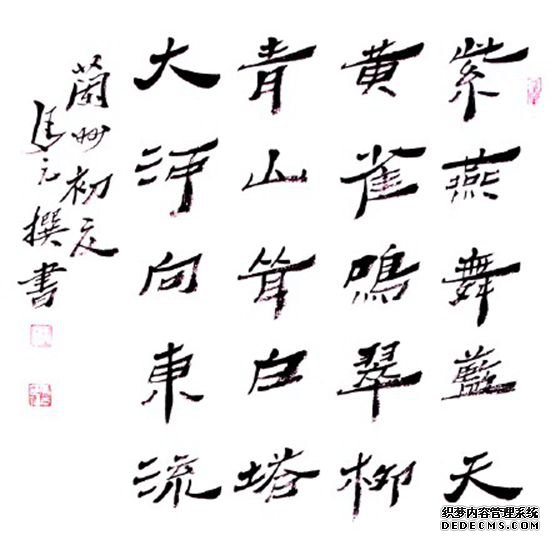 紫燕舞藍天
黄雀鳴翠柳
青山耸白塔
大河向東流
蘭州初夏
馬元撰書
织梦内容管理系统
DEDECMS.COM